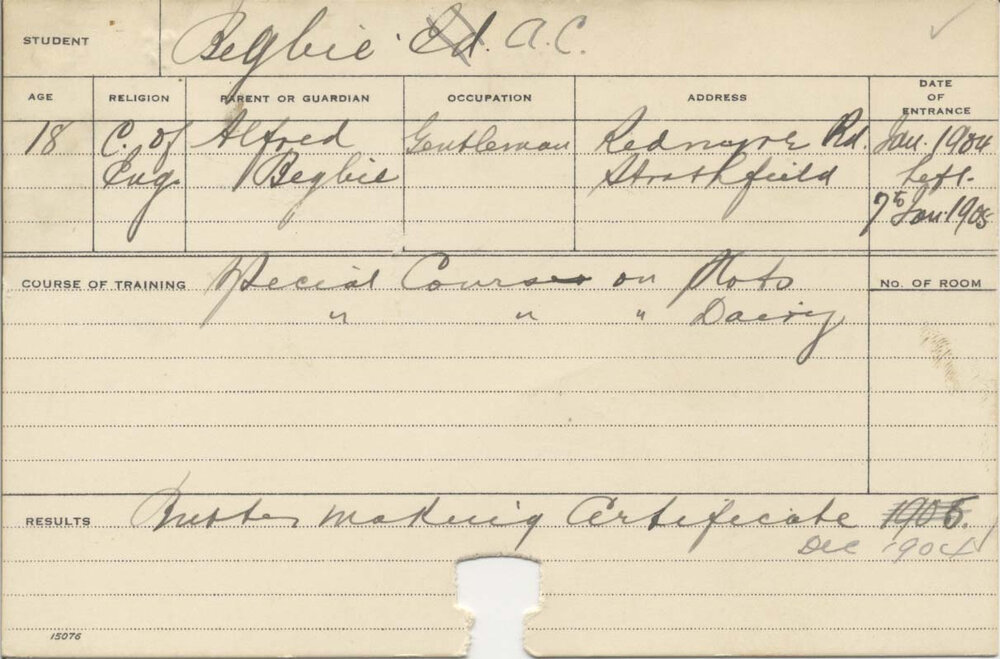 STUDENT Begbie Ed. A.C.
AGE RELIGION PARENT OR GUARDIAN OCCUPATION ADDRESS DATE OF ENTRANCE
18 C. of Alfred Gentleman Redmyre Rd. Jan. 1904
Eng. Begbie Strathfield Left.
7th Jan. 1905
COURSE OF TRAINING Special Course on Plots No. OF ROOM
" " " Dairy
RESULTS Butter making Certificate 1905.
Dec 1904
15076